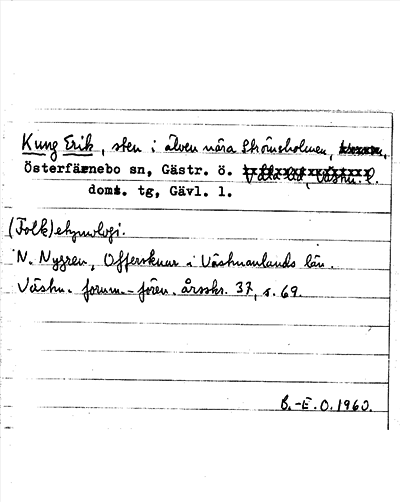 Kung Erik, sten i älven nära Strömsholmen,
Österfärnebo sn, Gästr. ö.
doms. tg, Gävl. l.
(Folk)etymologi.
N. Nygren, Offerskuar i Västmanlands län.
Västm. fornm.-fören. årsskr. 37, s. 69.
B.-E. O. 1960.